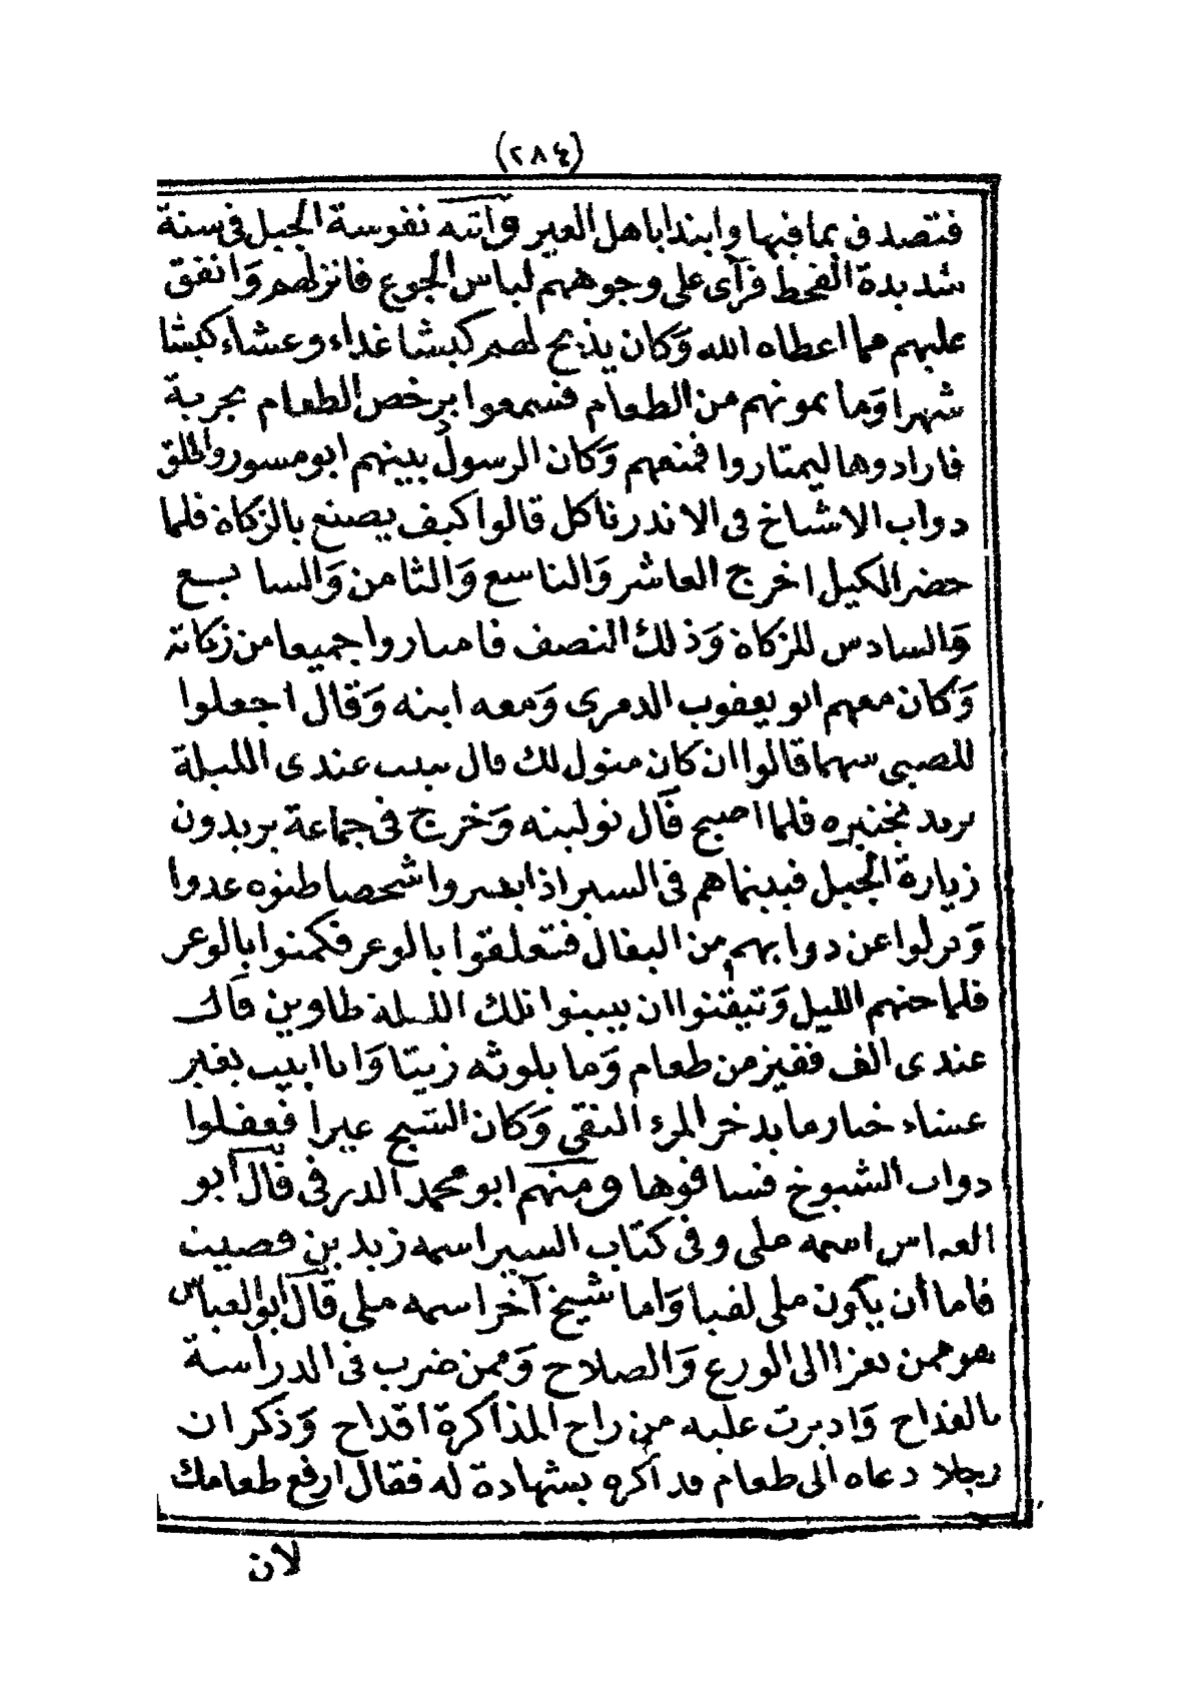 (٢٨٤)
فتصدق بما فيها وابتدا باهل العير وآتته نفوسة الجبل فى سنة
شديدة القحط فرآى على وجوههم لباس الجوع فانزلهم وَانفق
عليهم مما اعطاه الله وَكان يذبح لهم كبشا غداء وعشاء كبشا
شهرا وَما يمونهم من الطعام فسمعوا برخص الطعام بجربة
فارادوها ليمتاروا فمنعهم وَكان الرسول بينهم ابو مسور واطلق
دواب الاشياخ فى الاندر تاكل قالوا كيف يصنع بالزكاة فلما
حضر الكيل اخرج العاشر وَالتاسع وَالثامن وَالسابع
وَالسادس للزكاة وَذلك النصف فامتاروا جميعا من زكاته
وَكان معهم ابو يعقوب الدمرى وَمعه ابنه وَقال اجعلوا
للصبى سهما قالوا ان كان متولى لك قال يبيت عندى الليلة
يريد يختبره فلما اصبح قال توليته وَخرج فى جماعة يريدون
زيارة الجبل فبينما هم فى السير اذ ابصروا شخصا ظنوه عدوا
وَنزلوا عن دوابهم من البغال فتعلقوا بالوعر فكمنوا بالوعر
فلما جنهم الليل وَتيقنوا ان يبيتوا تلك الليلة طاوين قال
عندى الف قفيز من طعام وَما يلوثه زيتا وَانا ابيت بغير
عشاء خسار ما يدخر المرء التقى وَكان الشيخ عبرا فعقلوا
دواب الشيوخ فساقوها ومنهم ابو محمد الدرفى قال أبو
العباس اسمه ملى وفى كتاب السير اسمه زيد بن فصيت
فاما أن يكون ملى لقبا وَاما شيخ آخر اسمه ملى قال ابو العباس
هو ممن يعزا الى الورع وَالصلاح وَممن ضرب فى الدراسة
بالقداح وَاديرت عليه من راح المذاكرة اقداح وَذكر ان
رجلا دعاه الى طعام فذاكره بشهادة له فقال ارفع طعامك
لان